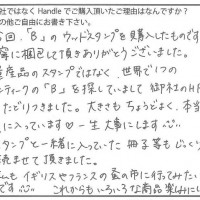 社ではなく Handle でご購入頂いたご理由はなんですか?
の他ご自由にお書き下さい。
今回、"B"のウッドスタンプを購入したものです
寧に梱包して頂きありがとうございました。
量産品のスタンプではなく、世界で1つの
ンティークの"B"を探していまして 御社のHP
たどりつきました。大きさもちょうどよく、本当
に入っています♡一生大事にします
スタンプと一緒に入っていた 冊子等もじっくり
読ませて頂きました。
もイギリスやフランスの蚤の市に行ってみたい
です これからもいろいろな商品楽しみにし